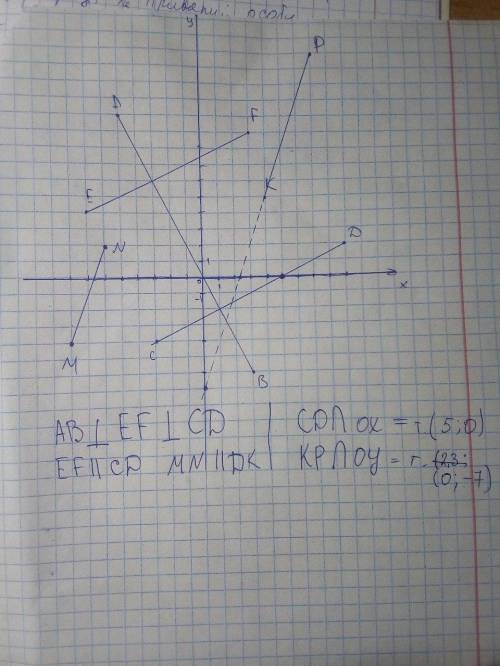 y
P
A
F
K
E
N
D
1
0
1
-1
x
M
C
B
AB ⊥ EF ⊥ CD | CD ∩ OX = т.(5;0)
EF || CD MN || DK | KP ∩ OY = т.
(0;-7)